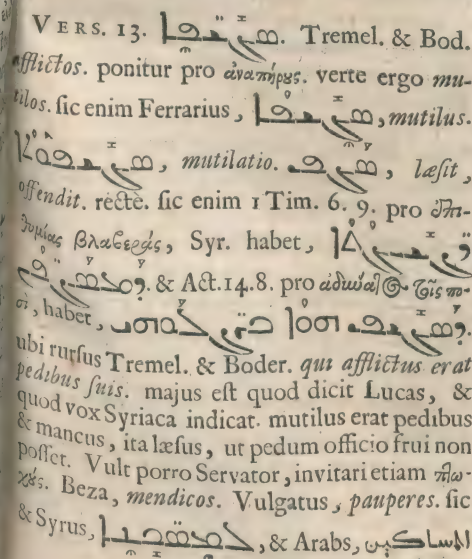 VERS. 13. ܣܓܝܦ̈ܐ. Tremel. & Bod.
afflictos. ponitur pro ἀναπήρους. verte ergo mu-
tilos. sic enim Ferrarius, ܣܓܝܦܐ, mutilus.
ܣܓܝܦܘܬܐ, mutilatio. ܣܓܦ, læsit,
offendit. recte. sic enim 1 Tim. 6. 9. pro ἐπι-
θυμίας βλαβεράς, Syr. habet,
& Act. 14. 8. pro ἀδύνατος τοῖς πο-
σί, habet, ܕܣܓܝܦ ܗܘܐ ܒܪ̈ܓܠܘܗܝ.
ubi rursus Tremel. & Boder. qui afflictus erat
pedibus suis. majus est quod dicit Lucas, &
quod vox Syriaca indicat. mutilus erat pedibus
& mancus, ita læsus, ut pedum officio frui non
posset. Vult porro Servator, invitari etiam πτω-
χούς. Beza, mendicos. Vulgatus, pauperes. sic
& Syrus, ܠܡܣܟ̈ܢܐ, & Arabs, المساكين